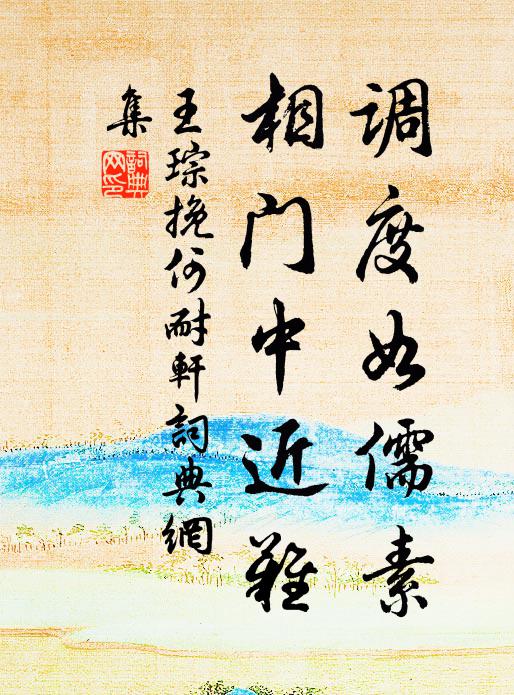 调度如儒素
相门中近难
王琮挽何耐軒詞典網
集
詞典
网印